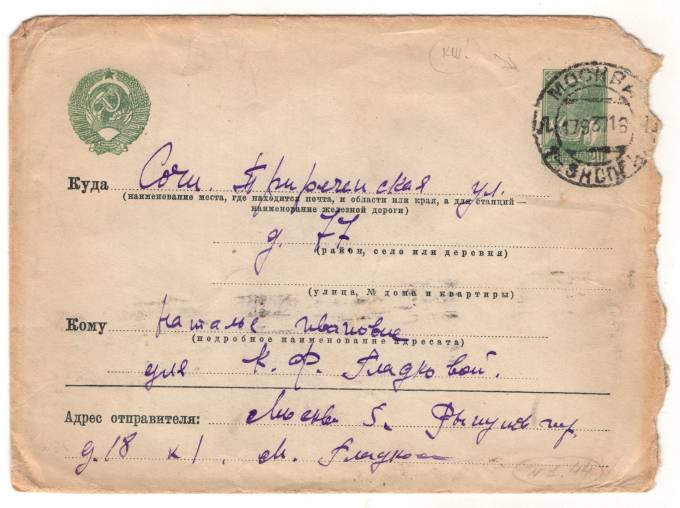 КШ!
МОСКВА
17 9 37 16
ЭКСПЕД
20
Куда Сочи. Приреченская ул.
(наименование места, где находится почта, и области или края, а для станций —
наименование железной дороги)
д. 77
(район, село или деревня)
(улица, № дома и квартиры)
Кому Наталье Ивановне
(подробное наименование адресата)
для К. Ф. Гладковой.
Адрес отправителя: Москва 5.
д. 18 к 1. М.